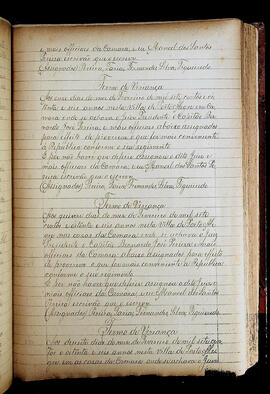 e mais officiais da Camara, e eu Manoel dos Santos
Pereira escrivão que o escrevy
(Assignados) Pereira, Faria, Fernandes Silva, Figueiredo
Termo de Vereança
Aos onze dias do mes de Fevereiro de mil sete centos e oi-
tenta e seis annos nesta Villa de Porto Alegre em Ca-
mara onde se achava o Juiz Presidente e Capitão Ber-
nardo José Pereira, e mais officiaes abaixo assignados
para effeito de proverem o que fos mais conveniente
à Republica conforme o seu regimento
E por não haver que deferir assignou o dito Juiz e
mais officiaes da Camara, e eu Manoel dos Santos Pe-
reira escrivão que o escrevy
(Assignados) Pereira, Faria, Fernandes, Silva, Figueiredo
Termo de Vereança
Aos quinze dias do mes de Fevereiro de mil sete
centos e oitenta e seis annos nesta Villa de Porto Ale-
gre nas casas da Camara onde se achava o Juiz
Presidente e Capitão Bernardo José Pereira e mais
officiaes da Camara abaixo assignados para effeito
de proverem o que fosse conveniente da Republica
conforme o seu regimento
E por não haver que deferir assignou o dito Juiz e
mais officiaes da Camara, e eu Manoel dos Santos
Pereira escrivão que o escrevy
(Assignados) Pereira, Faria, Fernandes, Silva, Figueiredo
Termo de Vereança
Aos dezoito dias do mes de Fevereiro de mil sete cen-
tos e oitenta e seis annos nesta Villa de Porto Ale-
gre em as casas da Camara onde se achava o Juiz